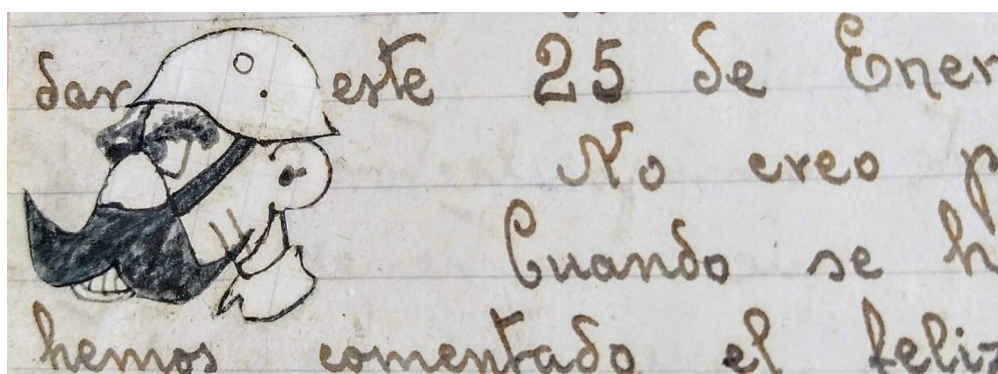 dar este 25 de Ener
No creo p
Cuando se h
hemos comentado el feliz